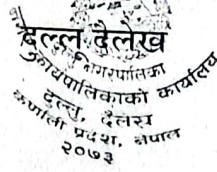 दुल्लु दैलेख
नगरपालिका
नगरकार्यपालिकाको कार्यालय
दुल्लु, दैलेख
कर्णाली प्रदेश, नेपाल
२०७३